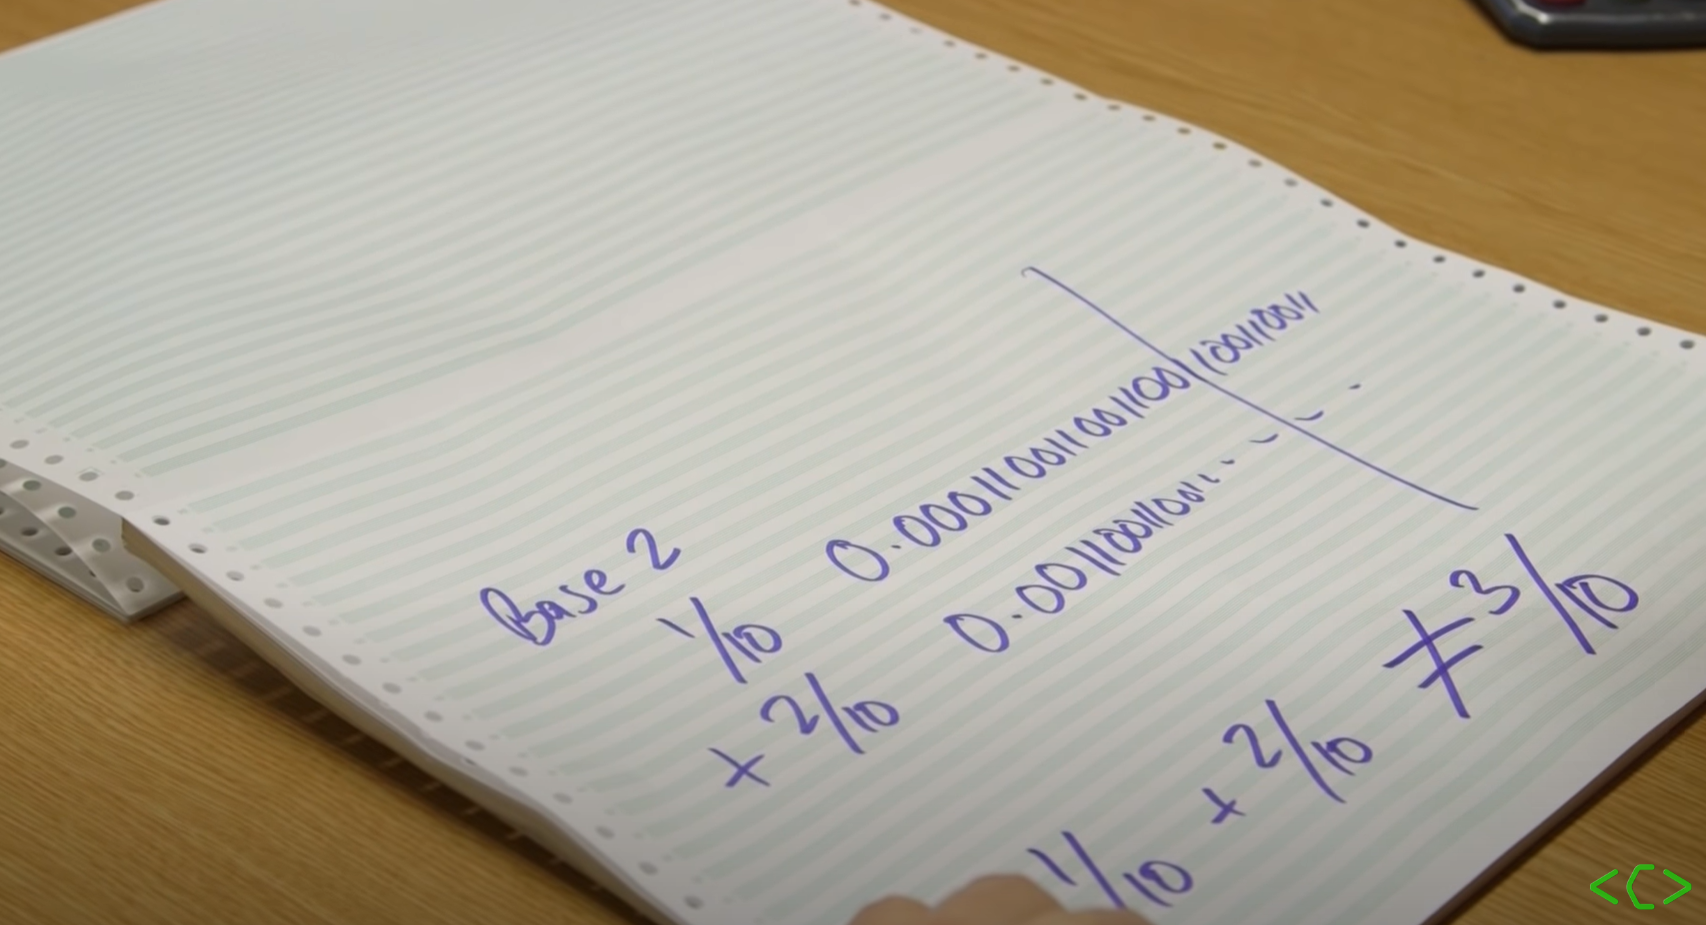 Base 2
1/10 0.0001100110011001100110011
+ 2/10 0.001100110011
1/10 + 2/10 ≠ 3/10
<C>